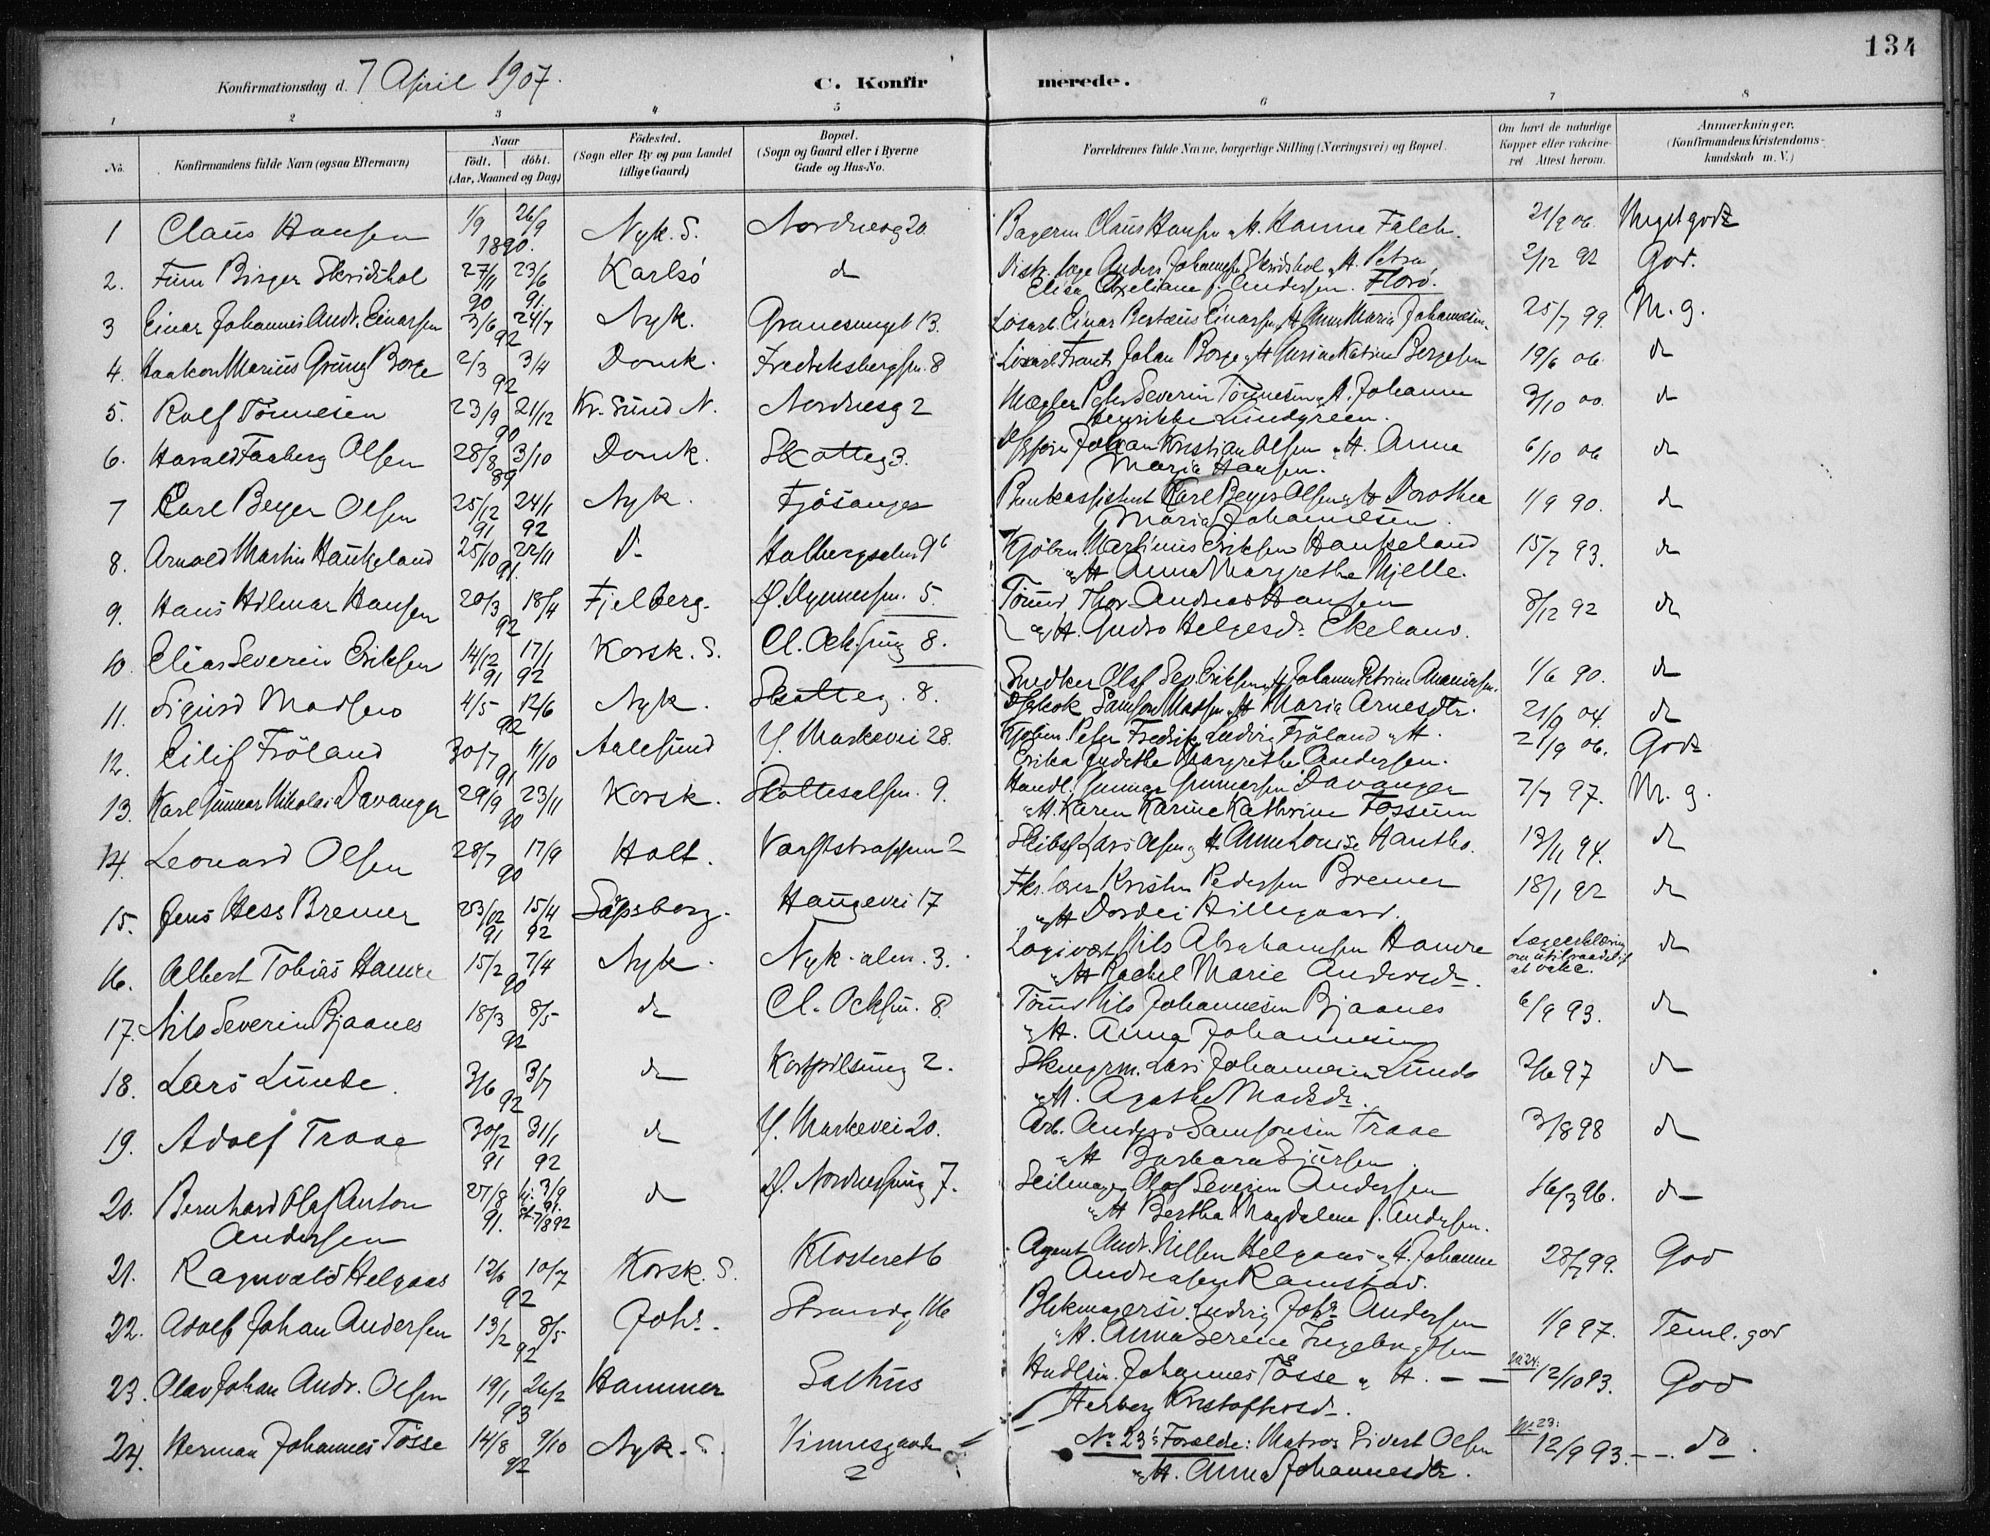 134
Konfirmationsdag d. 7 April 1907.
C. Konfirmerede.
1 2 3 4 5 6 7 8
No. Konfirmandens fulde Navn (ogsaa Efternavn) Naar født. døbt. (Aar, Maaned og Dag) Fødested. (Sogn eller By og paa Landet tillige Gaard) Bopæl. (Sogn og Gaard eller i Byerne Gade og Hus-No. Forældrenes fulde Navne, borgerlige Stilling (Næringsvei) og Bopæl. Om havt de naturlige Kopper eller vaccineret. Attest herom. Anmærkninger. (Konfirmandens Kristendomskundskab m. V.)
1 Claus Hansen 1/9 26/9 1890. Nyk. S. Nordnesg 20 Bagerm Claus Hansen H. Hanna Falch. 21/9 06. Meget godt
2. Finn Birger Skridshol 27/11 90 23/6 91. Karlsö do Distr. læge Anders Johannes Skridshol H. Petra
Elisa f. Andersen. Florö. 2/12 92 God.
3 Einar Johannes Andr. Einarsen 3/6 24/7 92 Nyk. Løsarb. Einar Einarsen H Anna Maria 25/7 99. M. g.
4. Haakon Marius Grung Borge 2/3 3/4 92 Domk. 8 Løsarb Frantz Johan Borge H 19/6 06. do
5. Rolf Tönnesen 23/9 21/12 90 Kr. Sund N. Nordnesg 2 Mægler Peter Severin Tönnesen H. Johanna
Henrikke Lundgreen. 3/10 00. do
6. Harald Faaberg Olsen 28/8 3/10 89 Domk. Skotteg 3. Johan Kristian Olsen H. Anna
Maria Hansen. 6/10 06 do
7 Carl Beyer Olsen 25/12 91 24/1 92 Nyk. Fjösanger Bankassistent Karl Beyer Olsen H Dorothea
Maria Johannesen. 1/9 90. do
8. Arnold Martin Haukeland 25/10 22/11 91. Do Kjøbm Martinus Eriksen Haukeland
H Anna Margrethe Mjelle. 15/7 93. do
9. Hans Hilmar Hansen 20/3 18/4 92 Fjelberg. 5. Tömd Thor Andreas Hansen
H. Helgesdr Ekeland. 8/12 92 do
10. Elias Severin Eriksen 14/12 91 17/1 92 Korsk. S. Cl. 8. Snedker Olaf Sev. Eriksen H Johanna Petrine 1/6 90. do
11. Sigurd Madsen 4/5 12/6 92 Nyk. Skotteg. 8. Samson Madsen H Maria Arnesdtr. 21/9 04. do
12. Eilif Fröland 30/7 11/10 91 Aalesund Y. Markevei 28. Kjøbm. Peter Fredrik Ludvig Fröland H.
Erika Judithe Margrethe Andersen. 21/9 06. Godt
13. Karl Gunnar Nikolai Davanger 29/9 23/11 90 Korsk. 9. Handl. Gunnar Gunnarsen Davanger
H. Karen Karine Kathrine Fossum 7/7 97. M. g.
14. Leonard Olsen 28/7 17/9 90 Holt. 2 Lars Olsen H Anne Louise 13/11 94. do
15. Jens Hess Bremer 23/12 91 15/4 92 Sarpsborg. Haugevei 17 Kristen Pedersen Bremer
H Dordei Hillegaard. 18/1 92 do
16. Albert Tobias Hamre 15/2 7/4 90 Nyk. Nyk. alm. 3. Logivært Nils Abrahamsen Hamre
H Rachel Marie Andersdr. Lægeerklæring om utilraadelig at vakc. do
17. Nils Severin Bjaanes 18/3 8/5 92 do Cl. 8 Tömd Nils Johannesen Bjaanes
H. Anna Johannesen 6/9 93. do
18. Lars Lunde. 3/6 3/7 92 do 2. Lars Johannesen Lunde
H. Agathe Madsdr. 97 do
19. Adolf Traae 30/12 91 31/1 92 do Y. Markevei 20. Arb. Anders Samsonsen Traae
H Barbara Sjursen. 3/8 98 do
20. Bernhard Olaf Anton
Andersen 27/8 91. 3/9 91. 7/8 92 do 7. Seilmager Olaf Severin Andersen
H Bertha Magdalene f. Andersen. 16/3 96. do
21. Ragnvald Helgaas 12/6 10/7 92 Korsk. S. Klosteret 6 Agent Andr. Nilsen Helgaas H. Johanne
Andreasen Ramstad. 28/7 99. God
22. Adolf Johan Andersen 13/2 8/5 92 Johs. Strandg 116 Ludvig Johs. Andersen
H. Anna Serine Ingebrigtsen 1/9 97. Teml. god
23. Olav Johan Andr. Olsen 19/1 26/2 93 Hammer Salhus Johannes Tösse H. —
Herborg Kristoffersdr. No 24: 12/10 93. God
24. Herman Johannes Tösse 14/8 9/10 92 Nyk. S. Vinnesgaarden 2 No 23's Forældre: Matros Sivert Olsen
H. Anna Johannesdtr. No 23: 12/9 93. — do.